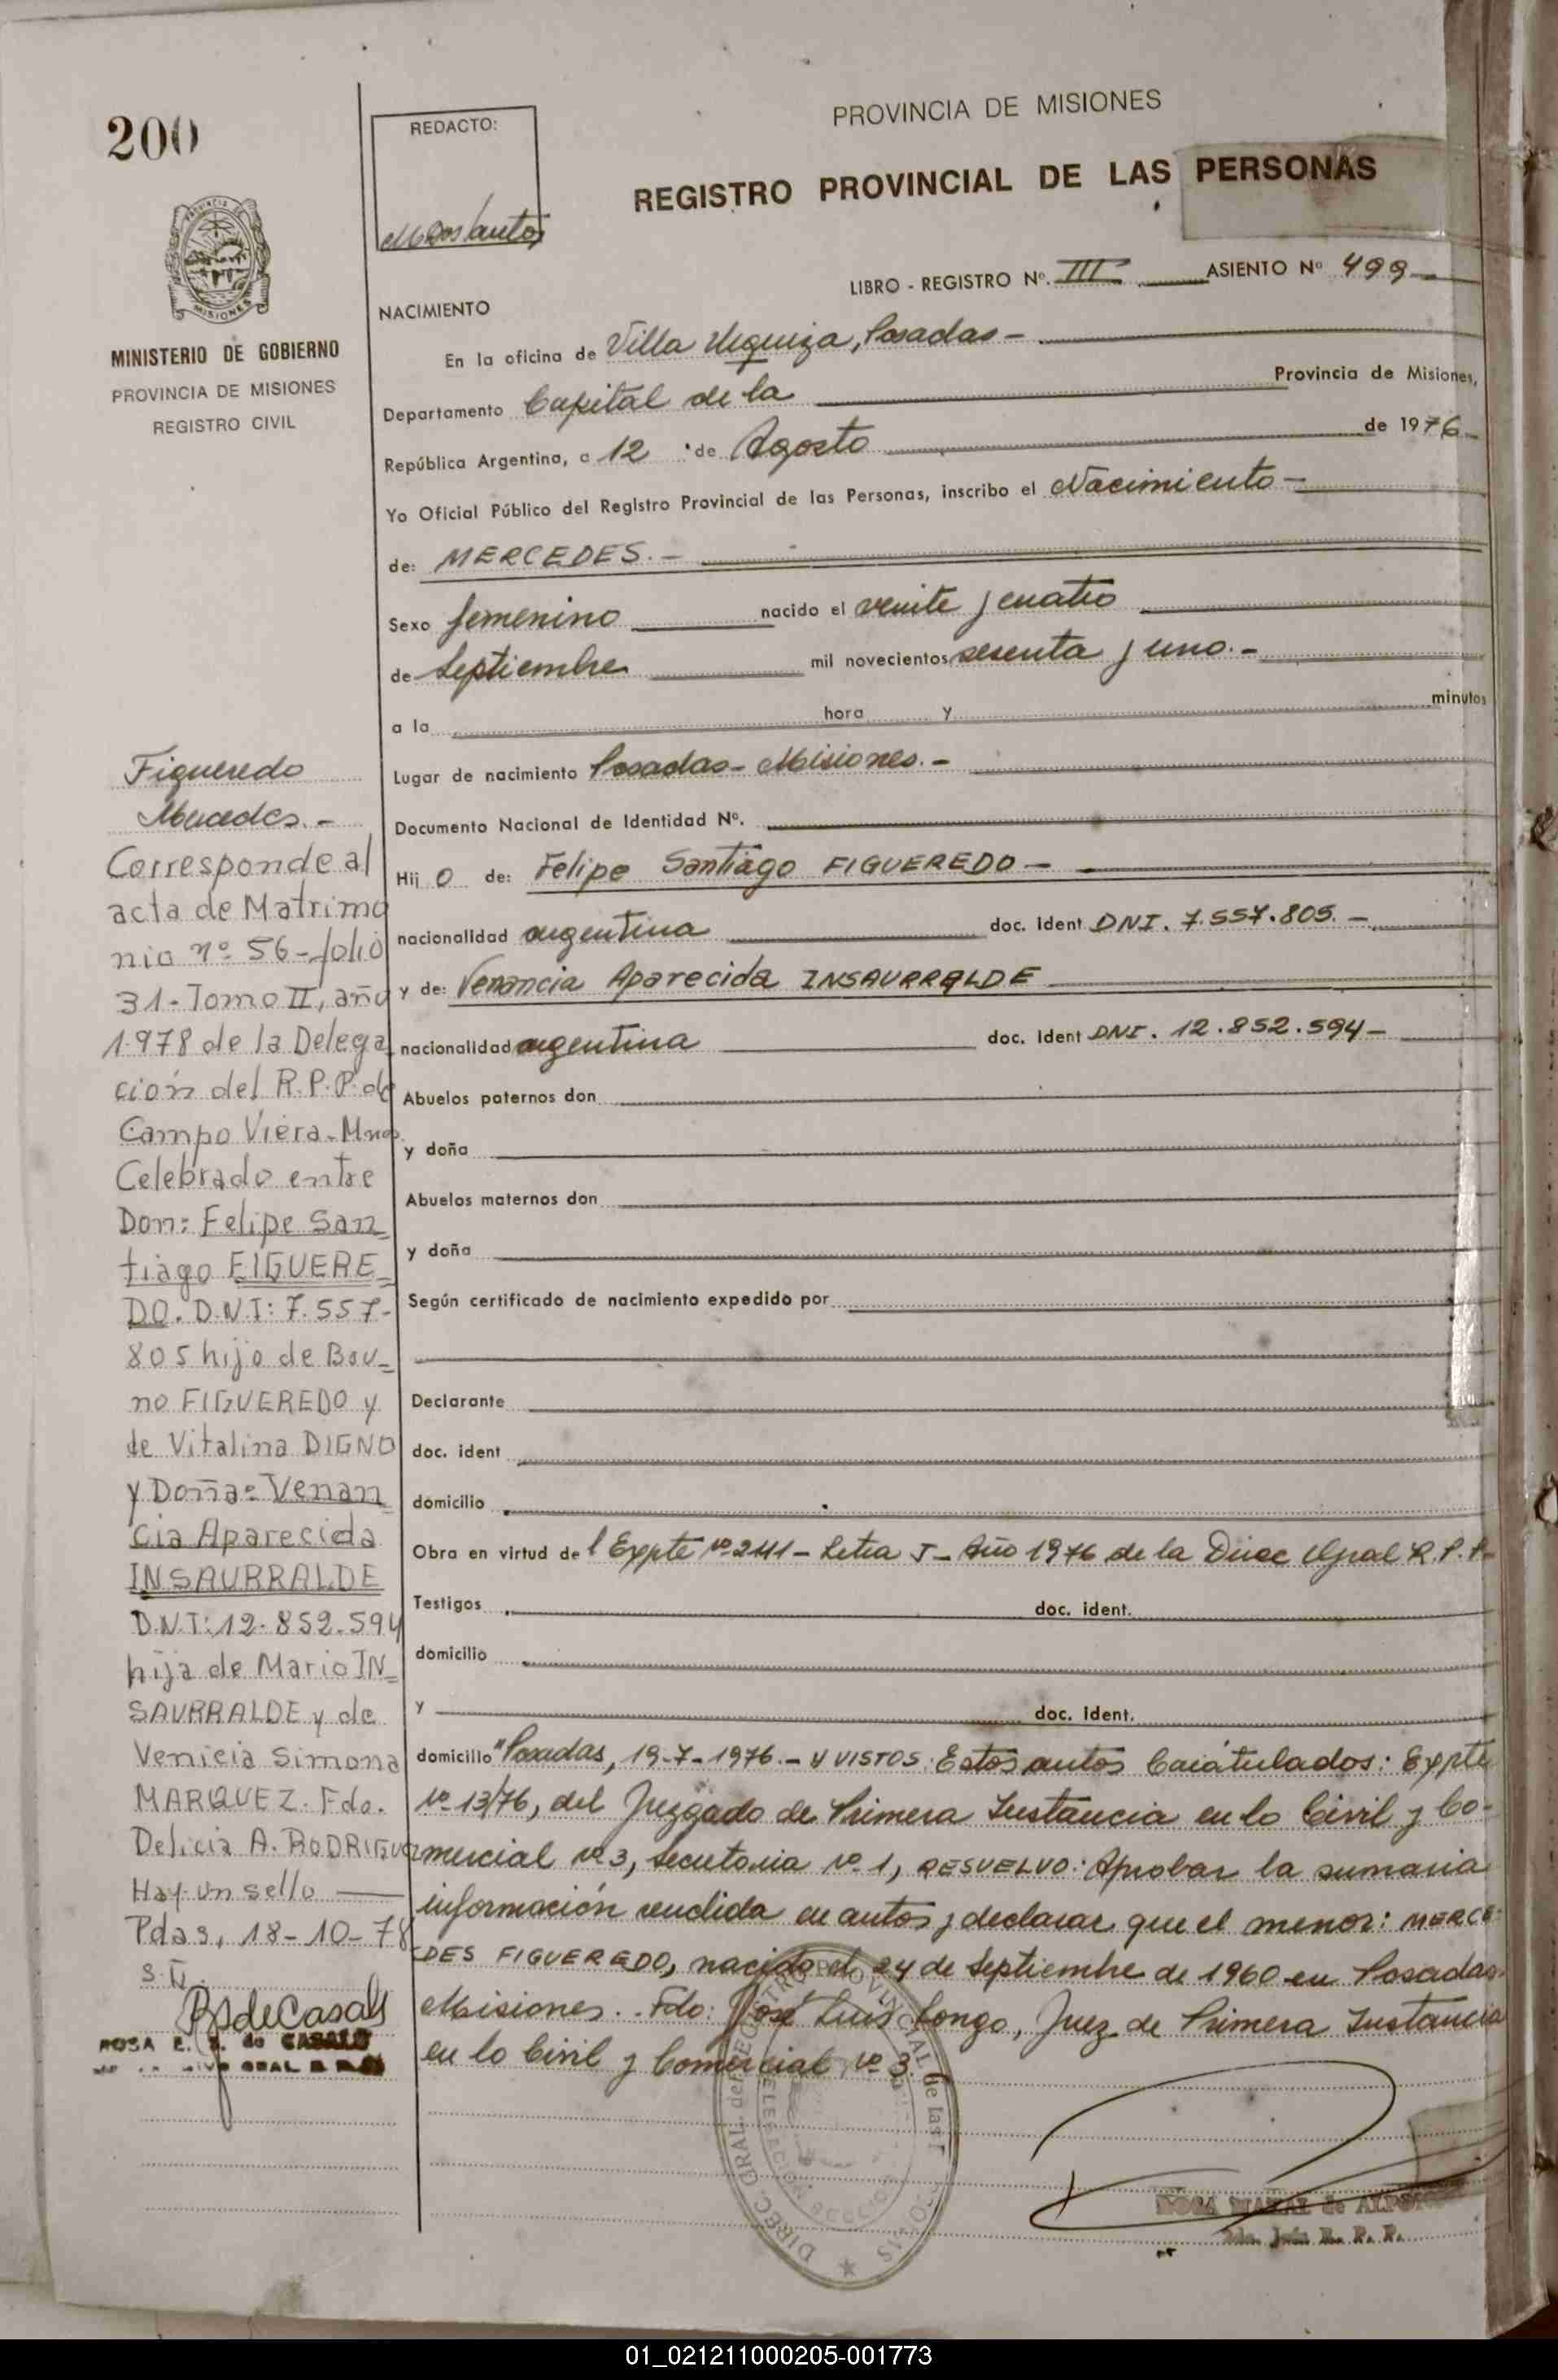 200
PROVINCIA DE MISIONES
MINISTERIO DE GOBIERNO
PROVINCIA DE MISIONES
REGISTRO CIVIL
REDACTO:
PROVINCIA DE MISIONES
REGISTRO PROVINCIAL DE LAS PERSONAS
LIBRO - REGISTRO Nº. III ASIENTO Nº 499
NACIMIENTO
En la oficina de Villa Urquiza, Posadas -
Departamento Capital de la Provincia de Misiones,
República Argentina, a 12 de Agosto de 1976
Yo Oficial Público del Registro Provincial de las Personas, inscribo el Nacimiento -
de: MERCEDES. -
Sexo femenino nacido el veinte y cuatro
de Septiembre mil novecientos sesenta y uno. -
a la hora y minutos
Lugar de nacimiento Posadas - Misiones. -
Documento Nacional de Identidad Nº.
Hij o de: Felipe Santiago FIGUEREDO -
nacionalidad argentina doc. ident DNI. 7.557.805. -
y de: Venancia Aparecida INSAURRALDE
nacionalidad argentina doc. ident DNI. 12.852.594 -
Abuelos paternos don
y doña
Abuelos maternos don
y doña
Según certificado de nacimiento expedido por
Declarante
doc. ident
domicilio
Obra en virtud de l Expte Nº 2411 - Letra J - Año 1976 de la Direc Gral R. P. P.
Testigos doc. ident.
domicilio
y doc. ident.
domicilio "Posadas, 19-7-1976. - Y VISTOS: Estos autos Caratulados: Expte
Nº 13/76, del Juzgado de Primera Instancia en lo Civil y Co-
mercial Nº 3, Secretaria Nº 1, RESUELVO: Aprobar la sumaria
información rendida en autos y declarar que el menor: MERCE-
DES FIGUEREDO, nacido el 24 de Septiembre de 1960 en Posadas
Misiones. . Fdo: José Luis Longo, Juez de Primera Instancia
en lo Civil y Comercial Nº 3.
Figueredo
Mercedes. -
Corresponde al
acta de Matrimo
nio nº 56 - folio
31 - Tomo II, año
1.978 de la Delega
ción del R.P.P. de
Campo Viera - Mnes.
Celebrado entre
Don: Felipe San
tiago FIGUERE
DO. D.N.I: 7.557-
805 hijo de Bau_
no FIGUEREDO y
de Vitalina DIGNO
y Doña: Venan
cia Aparecida
INSAURRALDE
D.N.I: 12.852.594
hija de Mario IN_
SAURRALDE y de
Venicia Simona
MARQUEZ. Fdo.
Delicia A. RODRIGUE
Hay un sello
Pdas, 18-10-78
RSdeCasals
ROSA E. S. de CASALS
DIREC. GRAL. del REGISTRO PROVINCIAL de las PERSONAS
ROSA
2da. Jefe R. P. P.
01_021211000205-001773